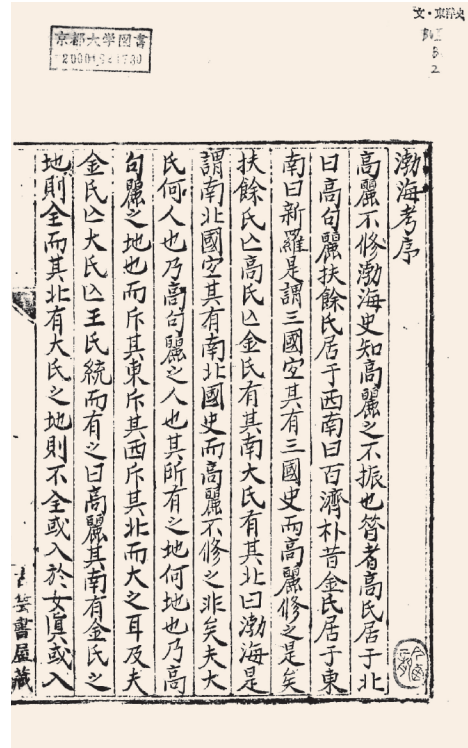 文・東洋史
京都大学図書
渤海考序
高麗不修渤海史知高麗之不振也昔者高氏居于北
曰高句麗扶餘氏居于西南曰百濟朴昔金氏居于東
南曰新羅是謂三國宜其有三國史而高麗修之是矣
扶餘氏亾高氏亾金氏有其南大氏有其北曰渤海是
謂南北國宜其有南北國史而高麗不修之非矣夫大
氏何人也乃高句麗之人也其所有之地何地也乃高
句麗之地也而斥其東斥其西斥其北而大之耳及夫
金氏亾大氏亾王氏統而有之曰高麗其南有金氏之
地則全而其北有大氏之地則不全或入於女眞或入
古芸書屋藏